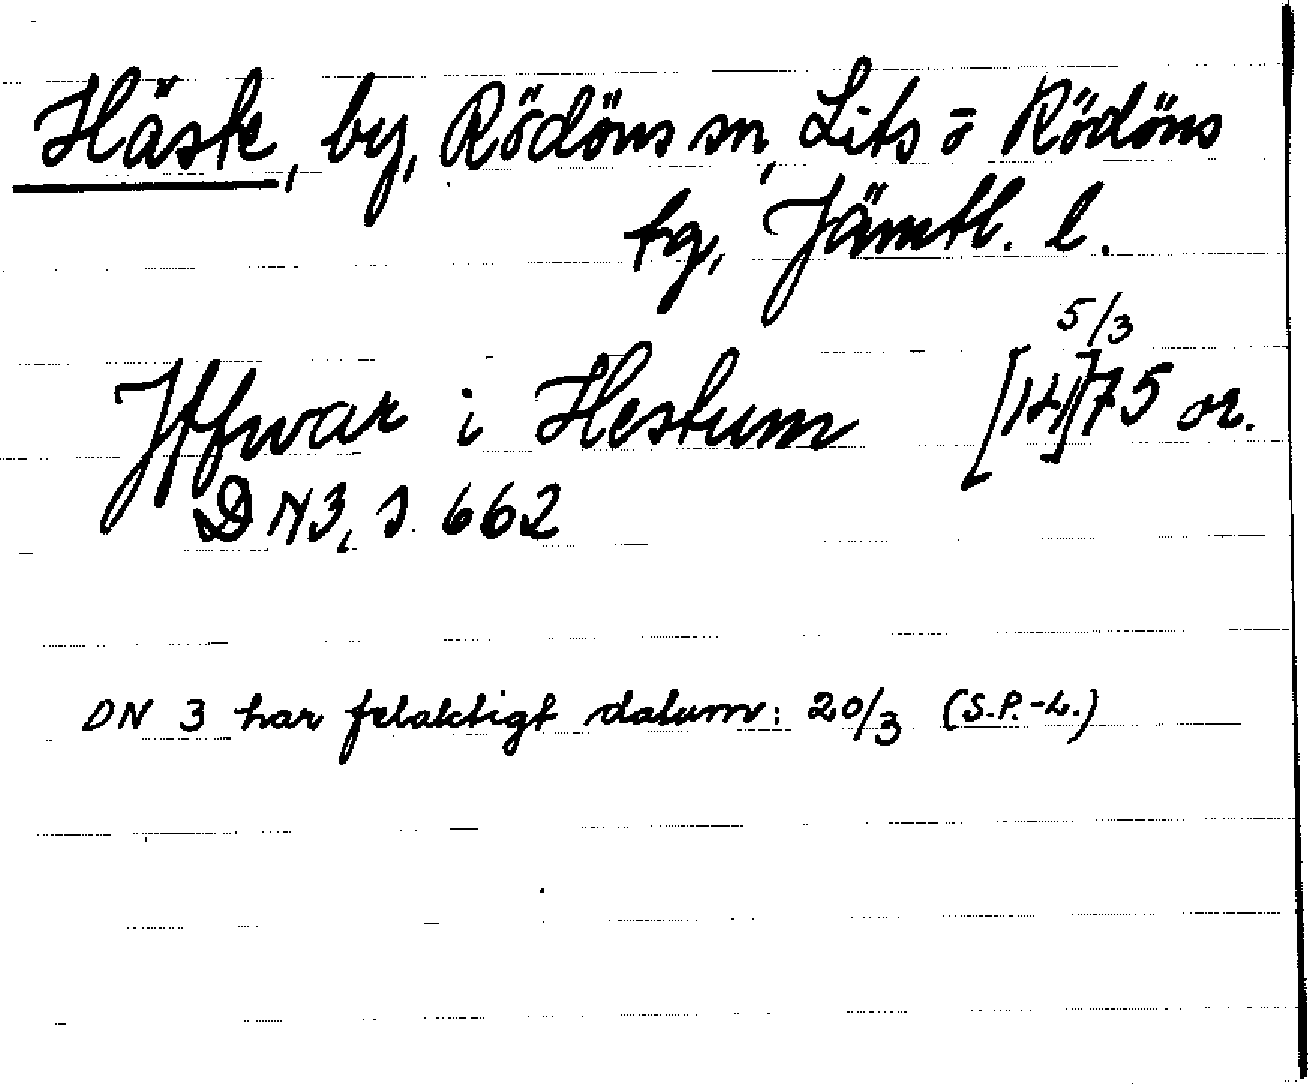 Häste, by, Rödöns sn, Lits o Rödöns
tg, Jämtl. l.
Jffwar i Hestum [14]75 5/3 or.
DN3, s. 662
DN 3 har felaktigt datum: 20/3 (S.P.-L.)